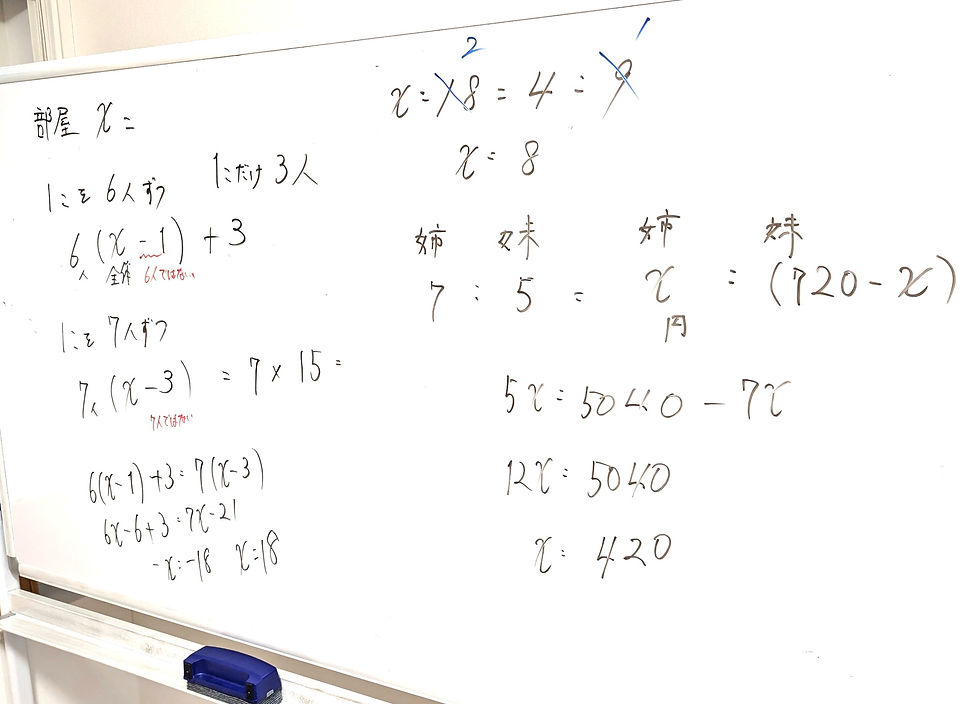 部屋 x =
1こを 6人ずつ 1こだけ 3人
6(x - 1) + 3
人 全体 6人ではない
1こを 7人ずつ
7人(x - 3) = 7 × 15 =
7人ではない
6(x-1)+3=7(x-3)
6x-6+3=7x-21
-x=-18 x=18
2 1
x : 18 = 4 : 9
x = 8
姉 妹 姉 妹
7 : 5 = x : (720 - x)
円
5x = 5040 - 7x
12x = 5040
x = 420